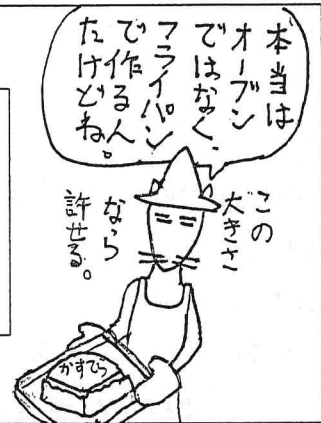 本当は
オーブン
ではなく、
フライパン
で作るん
だけどね。
この
大きさ
なら
許せる。
かすてら